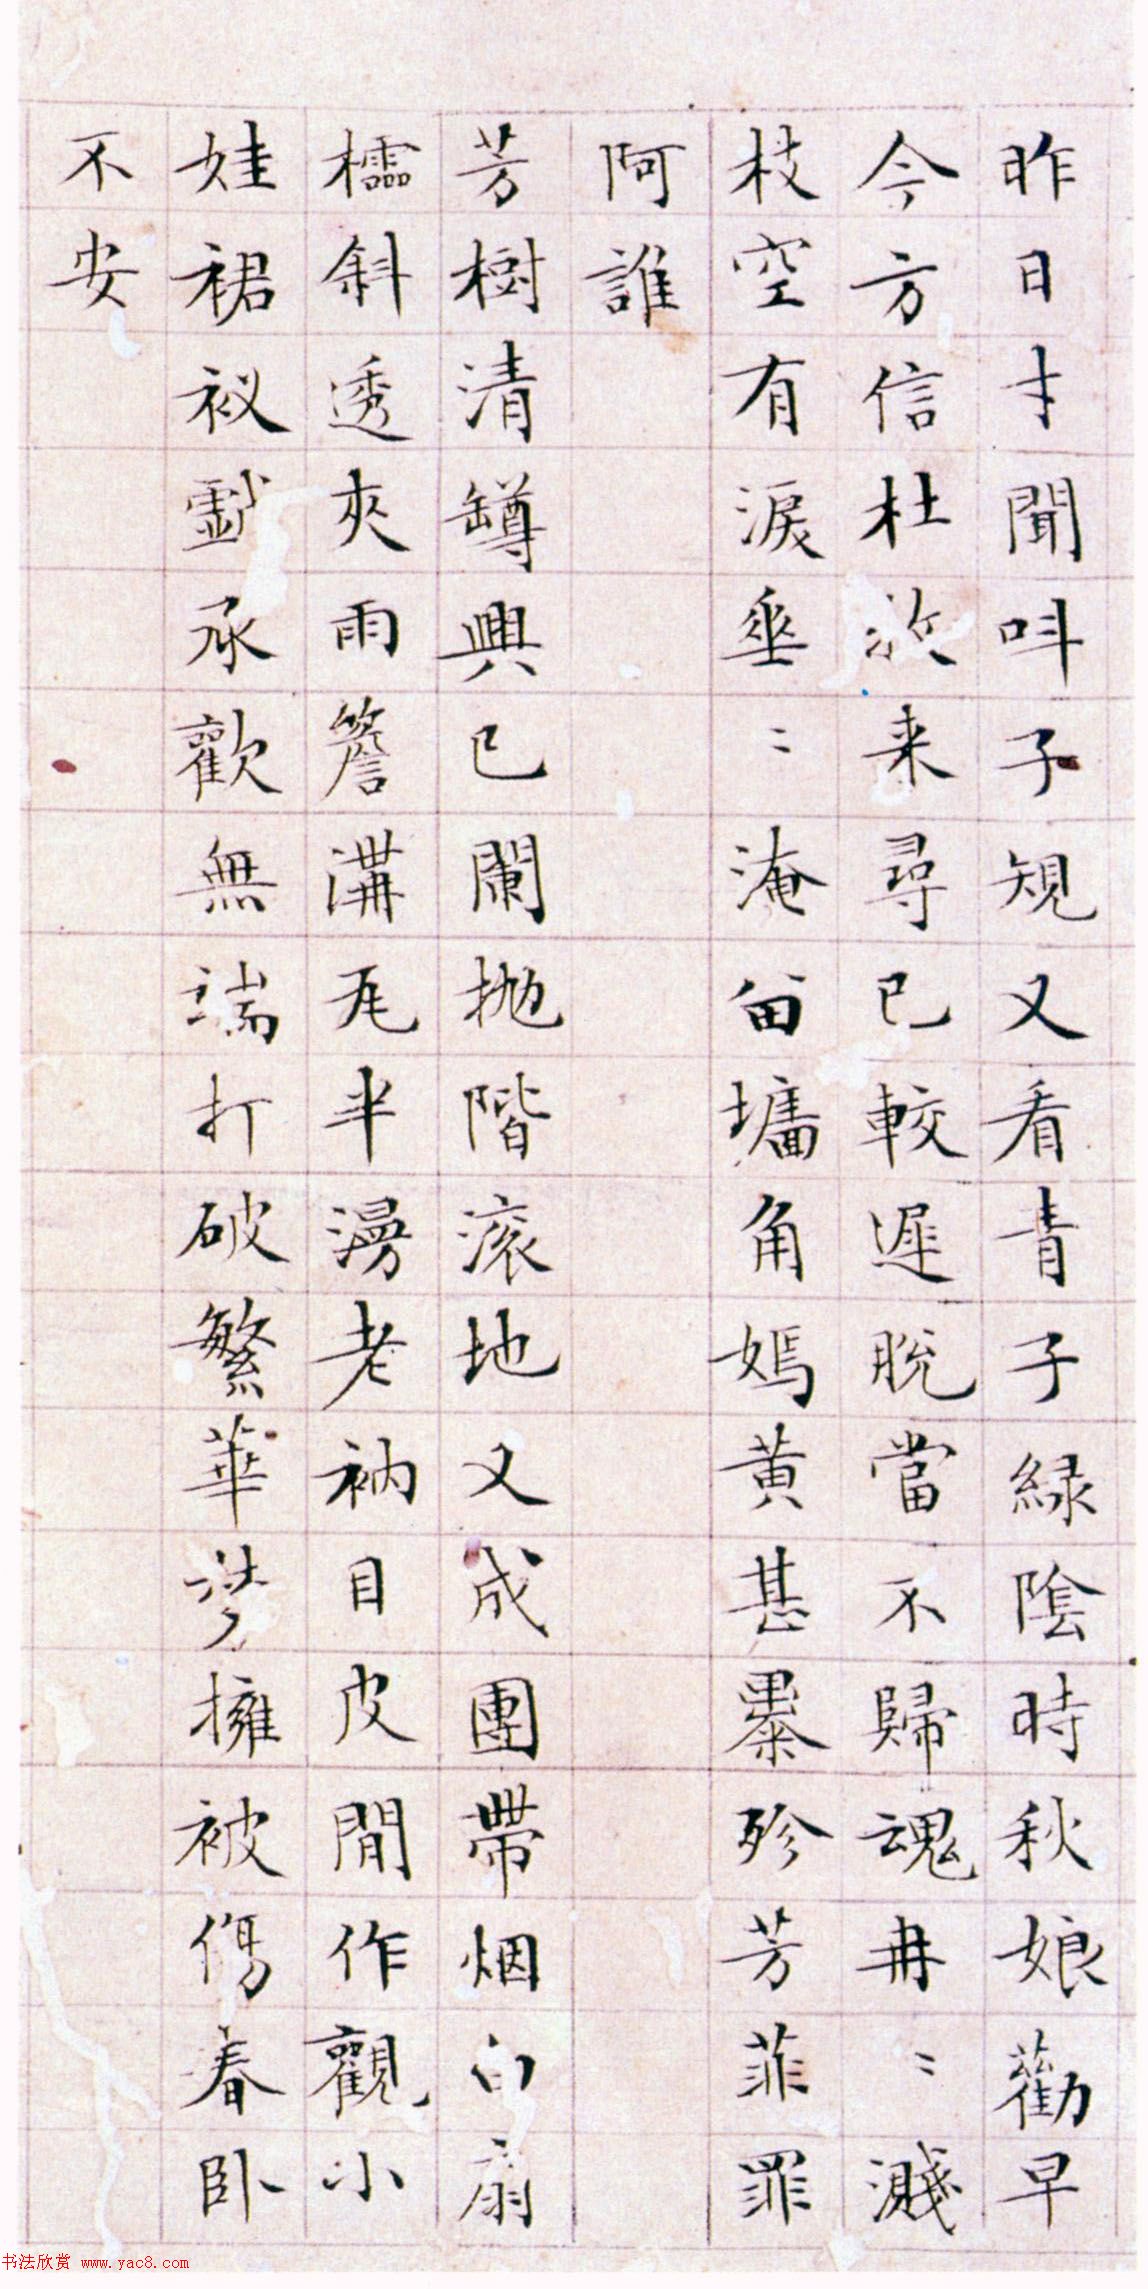 昨日才聞呌子規又看青子緑陰時秋娘勸早
今方信杜牧来尋已較遲脫當不歸魂冉〻濺
枝空有淚垂〻淹留墻角嫣黄甚暴殄芳菲罪
阿誰
芳樹清罇興已闌抛階滚地又成團帶烟白扇
櫺斜透夾雨簷溝瓦半漫老衲目皮閒作觀小
娃裙衩戯承歡無端打破繁華夢擁被傷春卧
不安
书法欣赏 www.yac8.com